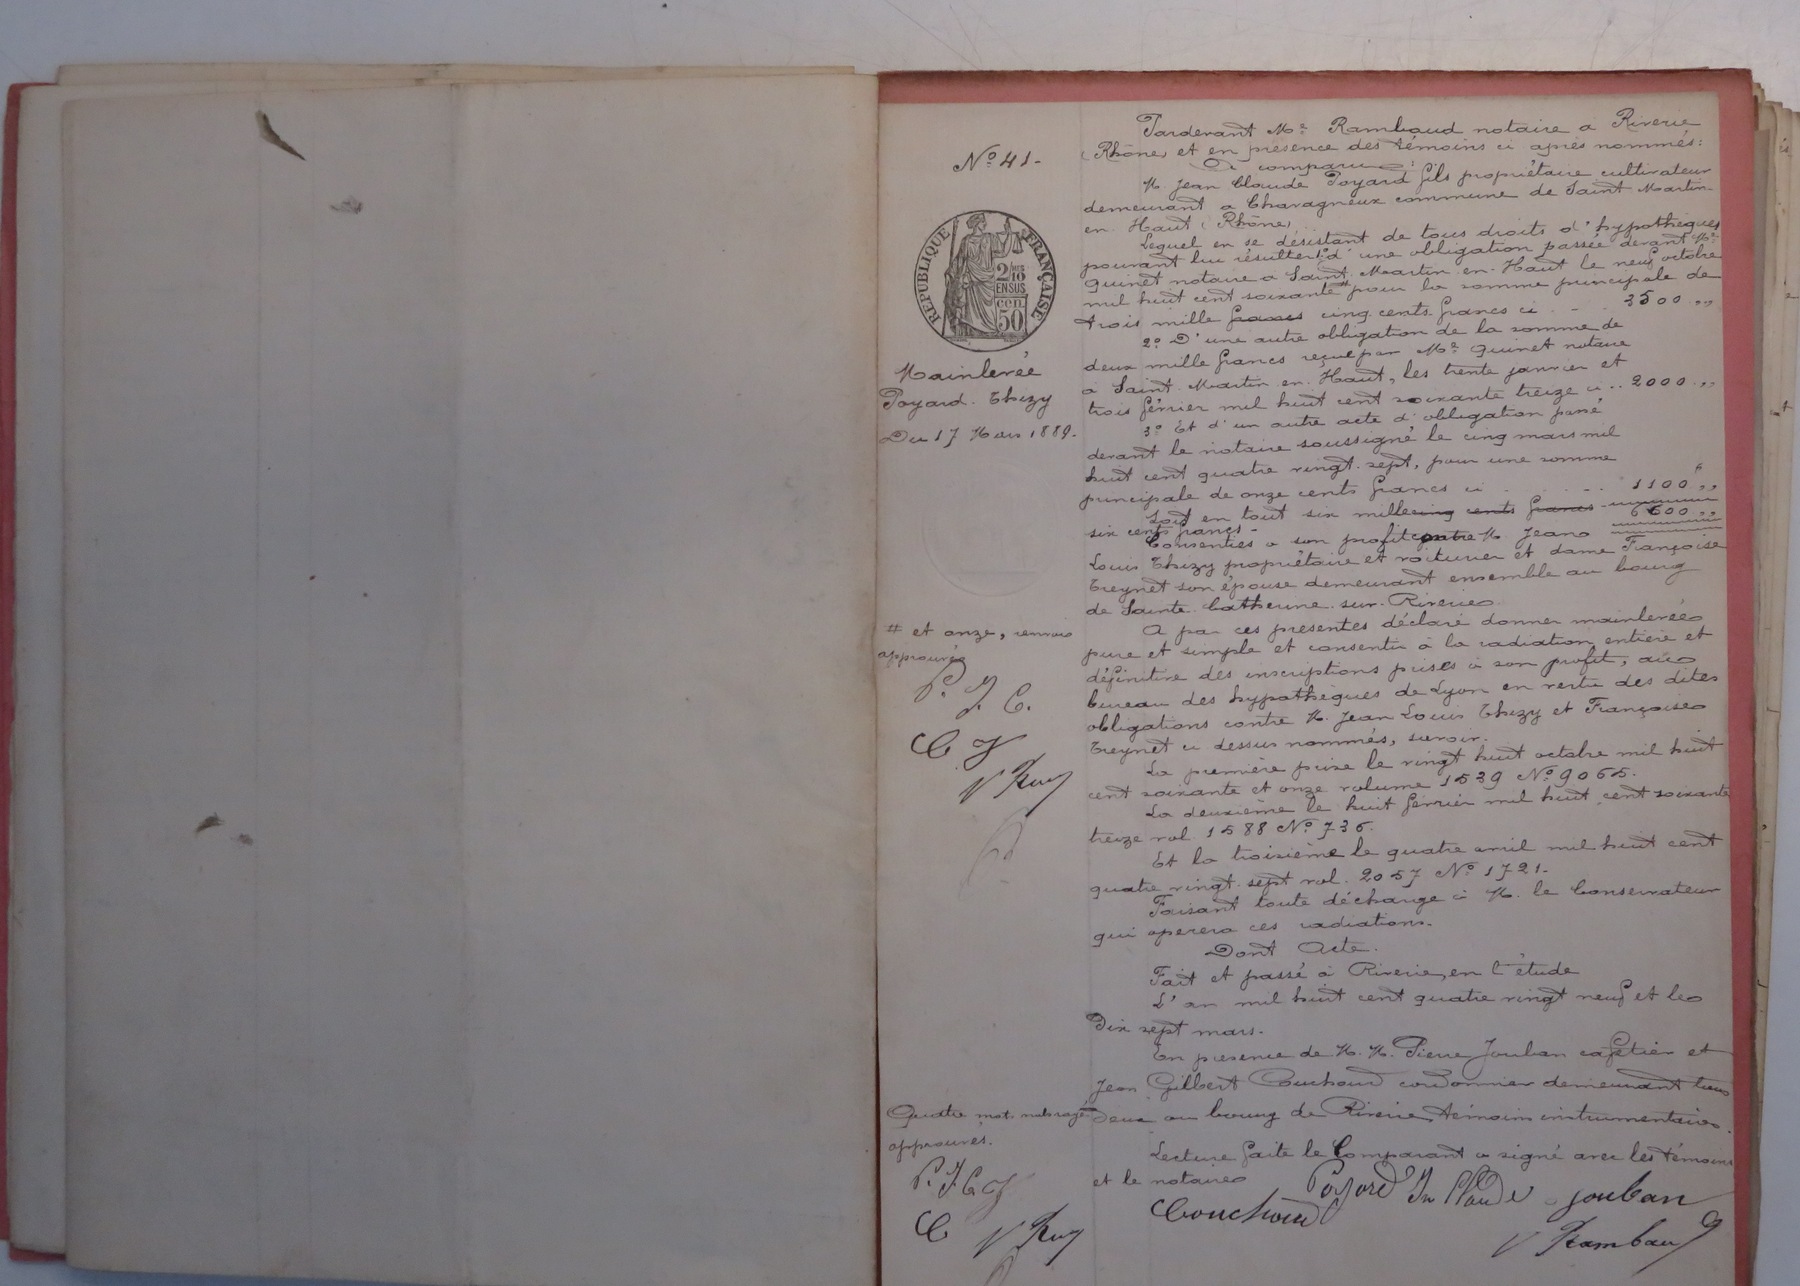 No 41-
RÉPUBLIQUE FRANÇAISE
2/10 EN SUS
50 cen
Mainlevée
Poyard-Thizy
Du 17 Mars 1889.
Pardevant Me Rambaud notaire à Riverie
(Rhône) et en présence des témoins ci après nommés:
A comparu:
M. Jean Claude Poyard fils propriétaire cultivateur
demeurant à Chavagneux commune de Saint Martin-
en Haut (Rhône)
Lequel en se désistant de tous droits d'hypothèques
pouvant lui résulter: 1o d'une obligation passée devant Me
Quinet notaire à Saint Martin en Haut le neuf octobre
mil huit cent soixante # pour la somme principale de
trois mille francs cinq cents francs ci - 3500 ,,
2o D'une autre obligation de la somme de
deux mille francs reçue par Me Quinet notaire
à Saint Martin en Haut, les trente janvier et
trois février mil huit cent soixante treize ci .. 2000 ,,
3o Et d'un autre acte d'obligation passé
devant le notaire soussigné le cinq mars mil
huit cent quatre vingt sept, pour une somme
principale de onze cents francs ci - 1100 ,,
Soit en tout six mille cinq cents francs - 6600 ,,
six cents francs -
Consenties à son profit contre M. Jean
Louis Thizy propriétaire et voiturier et dame Françoise
Treynet son épouse demeurant ensemble au bourg
de Sainte Catherine sur Riverie
A par ces présentes déclaré donner mainlevée
pure et simple et consentir à la radiation entière et
définitive des inscriptions prises à son profit, au
bureau des hypothèques de Lyon en vertu des dites
obligations contre M. Jean Louis Thizy et Françoise
Treynet ci dessus nommés, savoir.
La première prise le vingt huit octobre mil huit
cent soixante et onze volume 1539 No 9065.
La deuxième le huit février mil huit cent soixante
treize vol. 1588 No 736.
Et la troisième le quatre avril mil huit cent
quatre vingt sept vol. 2057 No 1721.
Faisant toute décharge à M. le Conservateur
qui opérera ces radiations.
Dont Acte.
Fait et passé à Riverie, en l'étude
L'an mil huit cent quatre vingt neuf et le
Dix sept mars.
En présence de M. M. Pierre Jouban cafetier et
Jean Gilbert Couchoud cordonnier demeurant tous
deux au bourg de Riverie, témoins instrumentaires.
Lecture faite le Comparant a signé avec les témoins
et le notaire
Poyard Jn Claude Jouban
Couchoud
V Rambaud
# et onze, renvoi
approuvé
P. J. C.
C J
V Ray
Quatre mot nuls rayé
approuvés.
P. J. C J
C V Ray